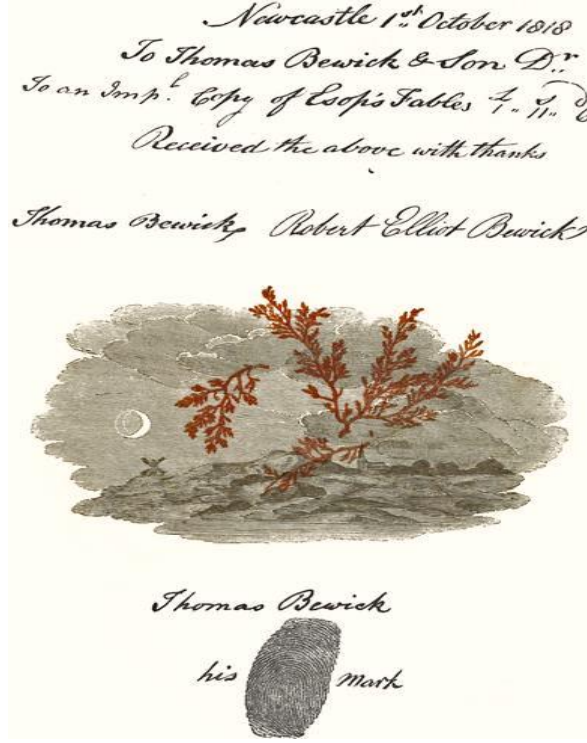 Newcastle 1st October 1818
To Thomas Bewick & Son Dr
To an Impl. Copy of Esop's Fables £ 1 " s 11 " d
Received the above with thanks
Thomas Bewick Robert Elliot Bewick
Thomas Bewick
his mark